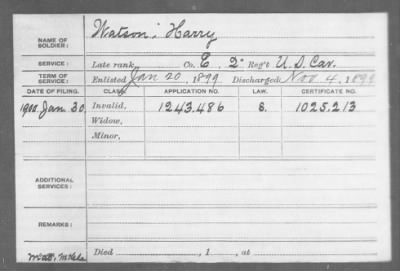 NAME OF SOLDIER: Watson, Harry
SERVICE: Late rank Co. E, 2" Reg't U. S. Cav.
TERM OF SERVICE: Enlisted Jan 20, 1899 Discharged Nov 4, 1899
DATE OF FILING. CLASS. APPLICATION NO. LAW. CERTIFICATE NO.
1900. Jan. 30 Invalid, 1243.486 S. 1025.213
Widow,
Minor,
ADDITIONAL SERVICES:
REMARKS:
Died , 1 , at